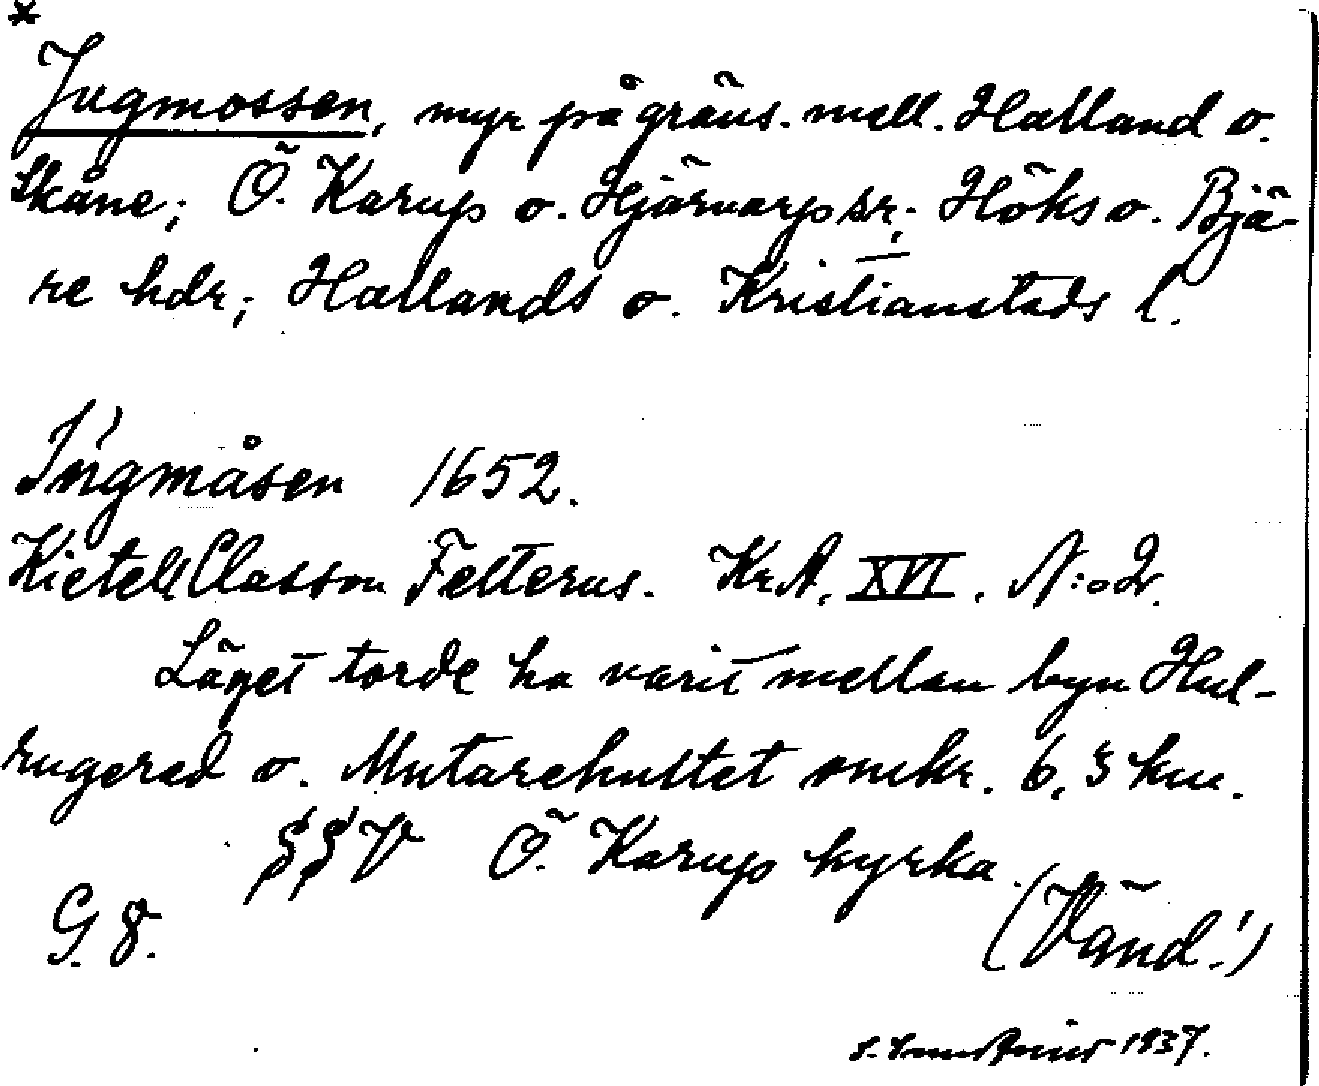 *
Jugmossen, myr på gräns. mell. Halland o.
Skåne; Ö. Karup o. Hjärnarp sr; Höks o. Bjä-
re hdr; Hallands o. Kristianstads l.
Ingmåsen 1652.
Kietell Classon Felterus. Kr.A. XVI. N:o 2.
Läget torde ha varit mellan byn Hul-
rugered o. Mutarehultet omkr. 6,5 km.
§§V Ö. Karup kyrka.
G. 8. (Vänd!)
1937.